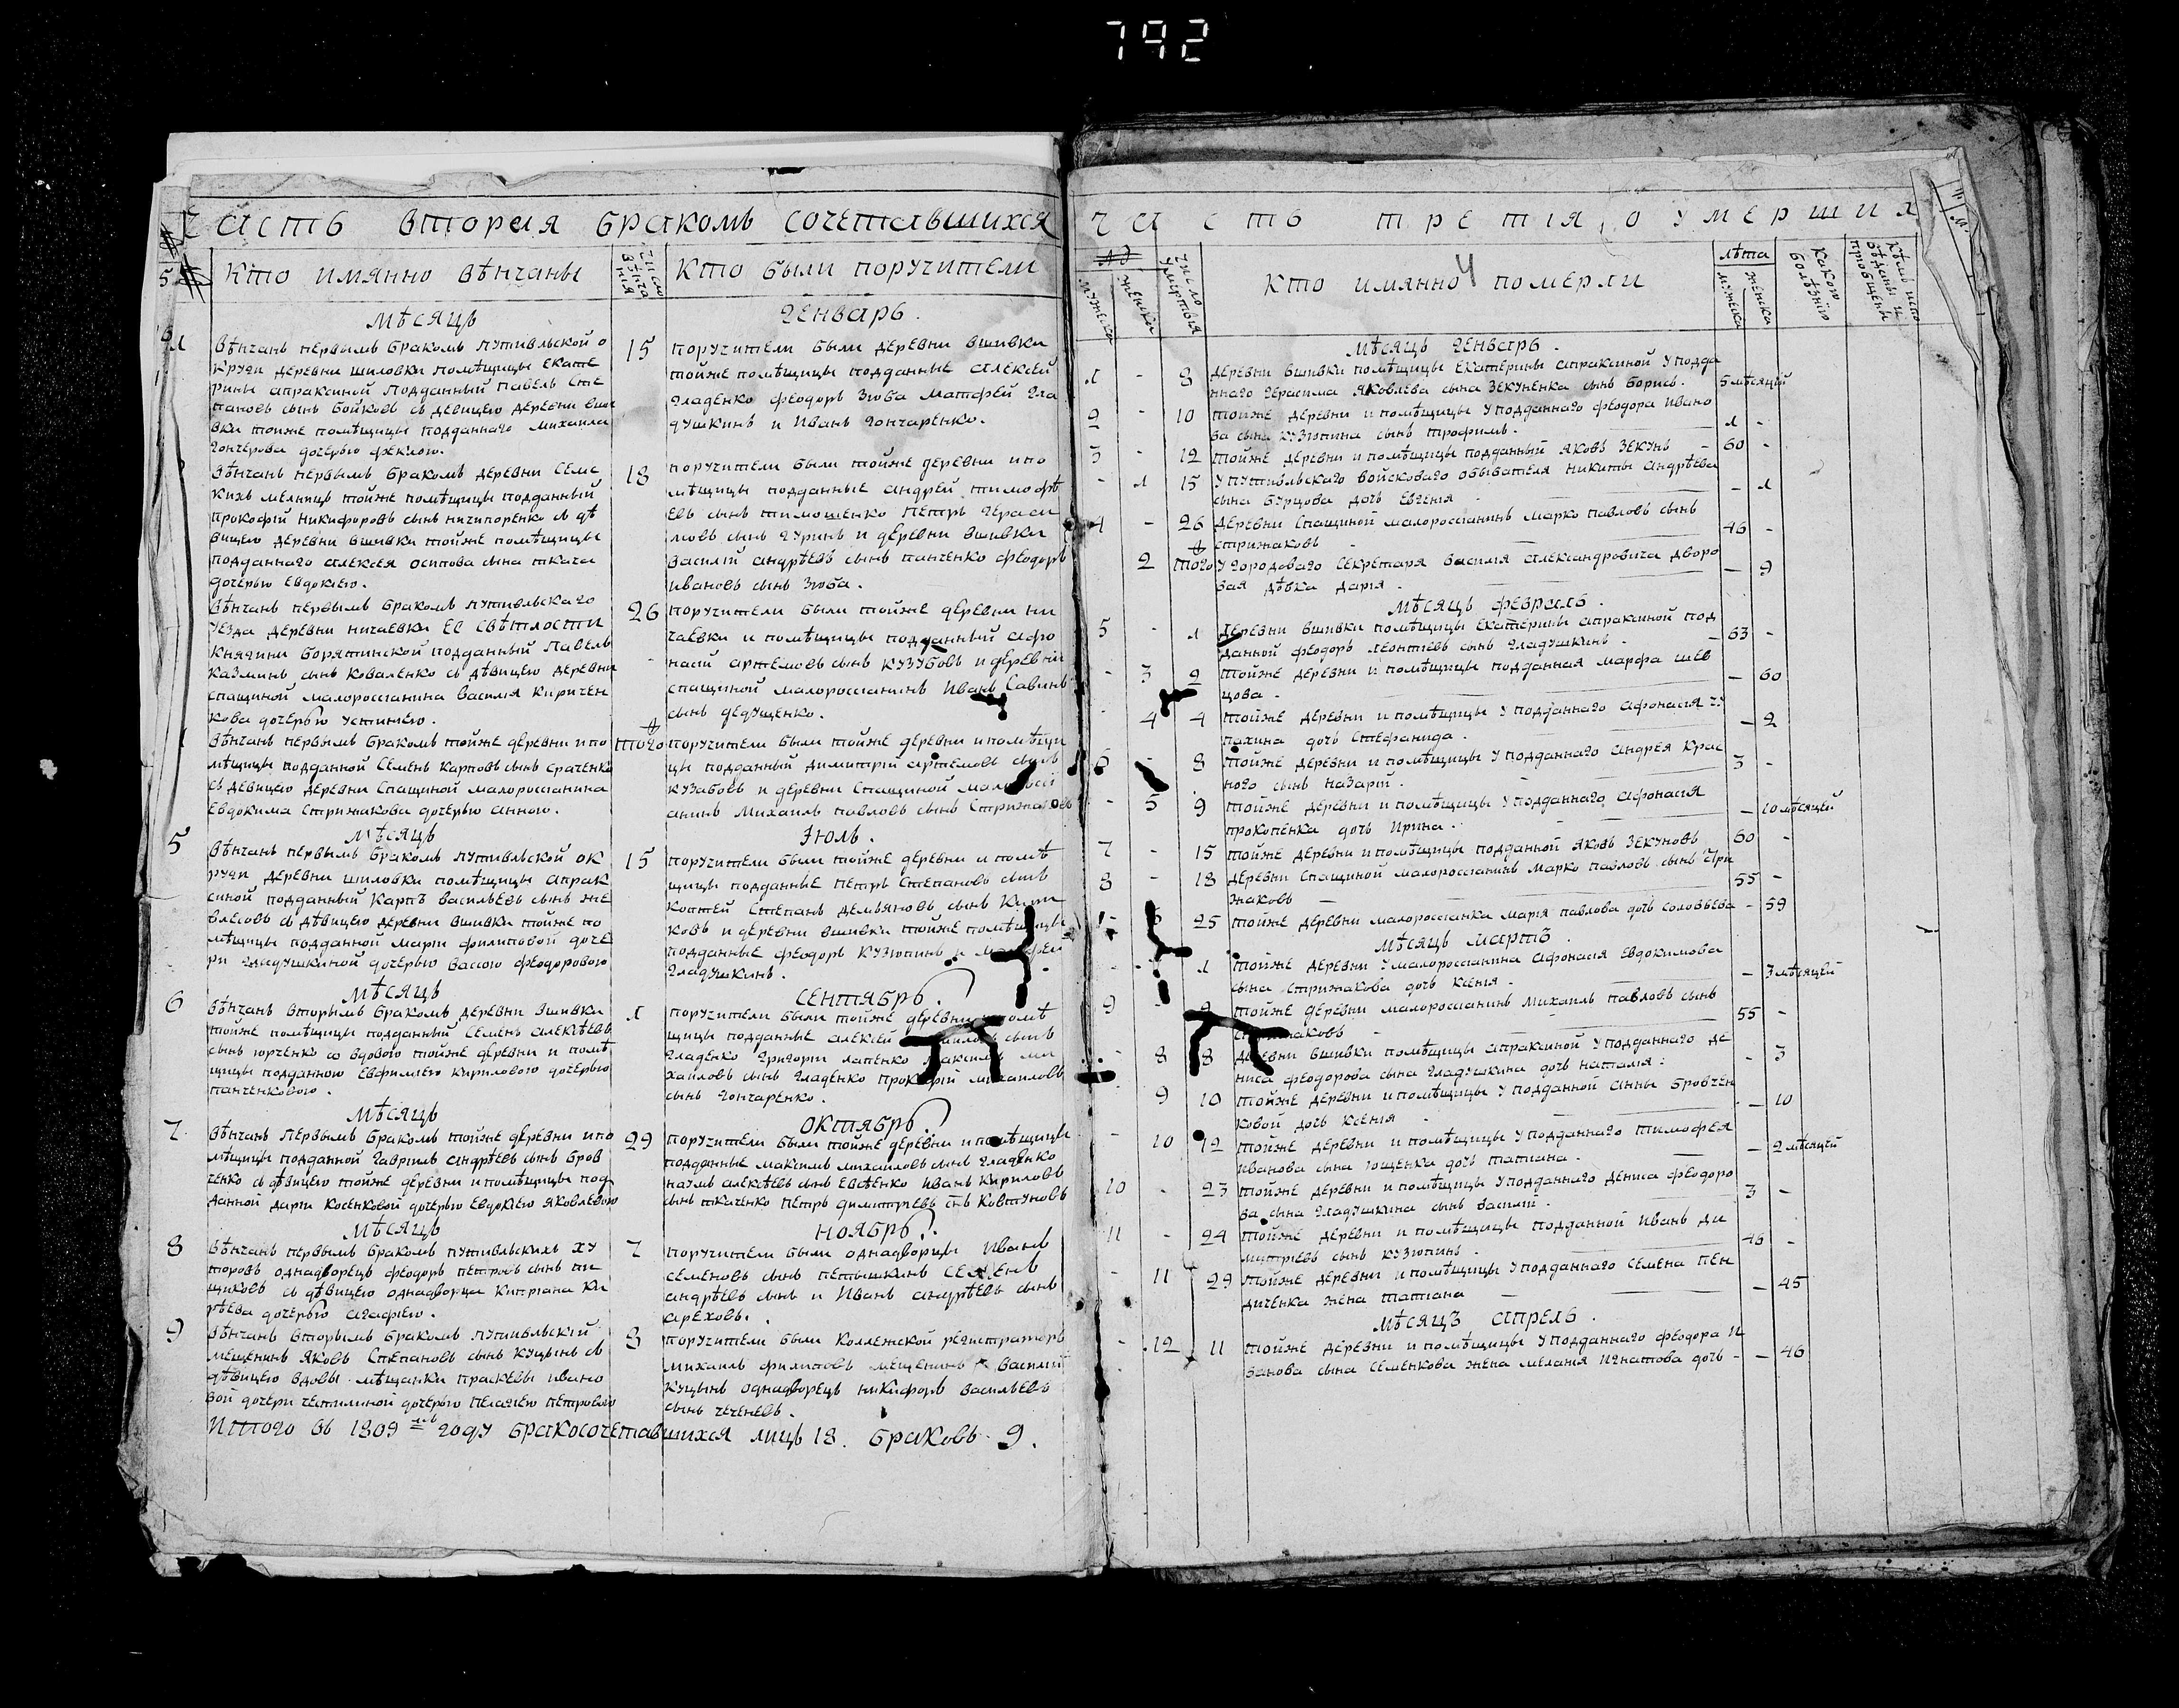 792
Часть вторая браком сочетавшихся
Кто имянно вѣнчаны
число вѣнчания
Кто были поручители
Мѣсяць Генварь.
1 Вѣнчанъ первымъ бракомъ путивльской о
круги деревни шиловки помѣщицы Екате
рины апраксиной подданный Павелъ Сте
пановъ сынъ Бойковъ съ девицею деревни вши
вки тойже помѣщицы подданнаго Михаила
гончерова дочерью феклою.
15 поручители были деревни вшивки
тойже помѣщицы подданные Алексей
гладенко феодоръ Зюба Матфей гла
душкинъ и Иванъ гончаренко.
Вѣнчанъ первымъ бракомъ деревни Семс
кихъ мелницъ тойже помѣщицы подданный
прокофій Никифоровъ сынъ ничипоренко съ дѣ
вицею деревни вшивки тойже помѣщицы
подданнаго алексея осипова сына ткача
дочерью Евдокиею.
18 поручители были тойже деревни и по
мѣщицы подданные андрей тимофѣ
евъ сынъ тимошенко Петръ гераси
мовъ сынъ гуринъ и деревни вшивки
василій андрѣевъ сынъ панченко феодоръ
ивановъ сынъ Зюба.
Вѣнчанъ первымъ бракомъ путивльскаго
уезда деревни ничаевки ее свѣтлости
княгини борятинской подданный Павелъ
Казминъ сынъ Коваленко съ дѣвицею деревни
спащиной малороссианина василя Киричен
кова дочерью устиниею.
26 поручители были тойже деревни ни
чаевки и помѣщицы подданный афо
насій артемовъ сынъ кузубовъ и деревни
спащиной малороссианинъ Иванъ Савинъ
сынъ дедущенко.
Вѣнчанъ первымъ бракомъ тойже деревни и по
мѣщицы подданной Семенъ карповъ сынъ сраченко
съ девицею деревни спащиной малороссианина
Евдокима стрижакова дочерью анною.
того поручители были тойже деревни и помѣщи
цы подданный димитрій артемовъ сынъ
кузабовъ и деревни спащиной малоросси
анинъ Михаилъ павловъ сынъ Стрижаковъ
Мѣсяць Июль.
5 Вѣнчанъ первымъ бракомъ путивльской ок
руги деревни шиловки помѣщицы апрак
синой подданный карпъ васильевъ сынъ же
влесовъ съ дѣвицею деревни вшивки тойже по
мѣщицы подданной марии филиповой доче
ри гладушкиной дочерью васою феодоровою
15 поручители были тойже деревни и помѣ
щицы подданные Петръ Степановъ сынъ
коптей Степанъ демьяновъ сынъ Кири
ковъ и деревни вшивки тойже помѣщицы
подданные феодоръ кузюпинъ и матфей
гладушкинъ.
Мѣсяць Сентябрь.
6 Вѣнчанъ вторымъ бракомъ деревни вшивки
тойже помѣщицы подданный Семенъ алексѣевъ
сынъ юрченко со вдовою тойже деревни и помѣ
щицы подданною Евфимиею кириловою дочерью
панченковою.
1 поручители были тойже деревни и помѣ
щицы подданные алексей михаиловъ сынъ
гладенко григории лапенко максимъ ми
хаиловъ сынъ гладенко прокофій михаиловъ
сынъ гончаренко.
Мѣсяць Октябрь.
7 Вѣнчанъ первымъ бракомъ тойже деревни и по
мѣщицы подданной гавриилъ андрѣевъ сынъ бров
ченко съ дѣвицею тойже деревни и помѣщицы под
данной дарии косенковой дочерью Евдокиею яковлевою
29 поручители были тойже деревни и помѣщицы
подданные максимъ михаиловъ сынъ гладенко
наумъ алексѣевъ сынъ Евсѣенко иванъ кириловъ
сынъ ткаченко петръ димитриевъ снъ ковтуновъ
Мѣсяць Ноябрь.
8 Вѣнчанъ первымъ бракомъ путивльскихъ ху
торовъ однадворецъ феодоръ петровъ сынъ пи
щиковъ съ дѣвицею однадворца киприана ки
рѣева дочерью агафиею.
7 поручители были однадворцы Иванъ
семеновъ сынъ петышкинъ семенъ
андрѣевъ сынъ и Иванъ андрѣевъ сынъ
ореховы.
9 Вѣнчанъ вторымъ бракомъ путивльскій
мещенинъ яковъ Степановъ сынъ куцынъ съ
дѣвицею вдовы мѣщанки праскевы ивано
вой дочери чептилиной дочерью пелагиею петровою
8 поручители были коллежской регистраторъ
михаилъ филиповъ мещенинъ василій
куцынъ однадворецъ никифоръ васильевъ
сынъ чеченевъ.
Итого въ 1809мъ году бракосочетавшихся лицъ 18. браковъ 9.
Часть третія о умершихъ
мужеска женска
число умертвія
Кто имянно померли
лѣта
мужеска женска
какою болѣзнію
Мѣсяць Генварь.
1 - 8 деревни вшивки помѣщицы Екатерины апраксиной у подда
ннаго герасима яковлева сына зекуненка сынъ борисъ. 5 мѣсяцей
2 - 10 тойже деревни и помѣщицы у подданнаго феодора ивано
ва сына кузюпина сынъ трофимъ. 1 -
3 - 12 тойже деревни и помѣщицы подданный яковъ зекунъ - 60 -
- 1 15 у путивльскаго войсковаго обывателя никиты андрѣева
сына бурцова дочь Евгения - - 1
4 - 26 деревни спащиной малороссианинъ марко павловъ сынъ
стрижаковъ - 46 -
- 2 того у городоваго секретаря василія александровича дворо
вая дѣвка дарія. - 9
Мѣсяць февраль.
5 - 1 деревни вшивки помѣщицы Екатерины апраксиной под
данной феодоръ леонтиевъ сынъ гладушкинъ. - 63 -
- 3 2 тойже деревни и помѣщицы подданная марфа шев
цова. - 60
4 4 тойже деревни и помѣщицы у подданнаго афонасия чу
пахина дочь стефанида. - 2
6 - 8 тойже деревни и помѣщицы у подданнаго андрея крас
ного сынъ назарій. 3 -
- 5 9 тойже деревни и помѣщицы у подданнаго афонасия
прокопенка дочь ирина. - 10 мѣсяцей
7 - 15 тойже деревни и помѣщицы подданной яковъ зекуновъ 60 -
8 - 18 деревни спащиной малороссианинъ марко павловъ сынъ
жаковъ - 55 -
25 тойже деревни малороссианка марія павлова дочь соловьева - 59
Мѣсяць мартъ.
1 тойже деревни у малороссианина афонасия евдокимова
сына стрижакова дочь ксения. - 3 мѣсяцей
9 - 2 тойже деревни малороссианинъ михаилъ павловъ сынъ
стрижаковъ - 55 -
- 8 8 деревни вшивки помѣщицы апраксиной у подданнаго де
ниса феодорова сына гладушкина дочь наталия: - 3
9 10 тойже деревни и помѣщицы у подданной анны бровчен
ковой дочь ксения - - 10
- 10 12 тойже деревни и помѣщицы у подданнаго тимофея
иванова сына ющенка дочь татиана. - 2 мѣсяцей
10 - 23 тойже деревни и помѣщицы у подданнаго дениса феодоро
ва сына гладушкина сынъ василій. 3 -
11 - 24 тойже деревни и помѣщицы подданной иванъ ди
митриевъ сынъ кузюпинъ. 46 -
- 11 29 тойже деревни и помѣщицы у подданнаго семена пен
диченка жена татиана - 45
Мѣсяцъ апрель.
- 12 11 тойже деревни и помѣщицы у подданнаго феодора и
ванова сына семенкова жена мелания игнатова дочь - - 46